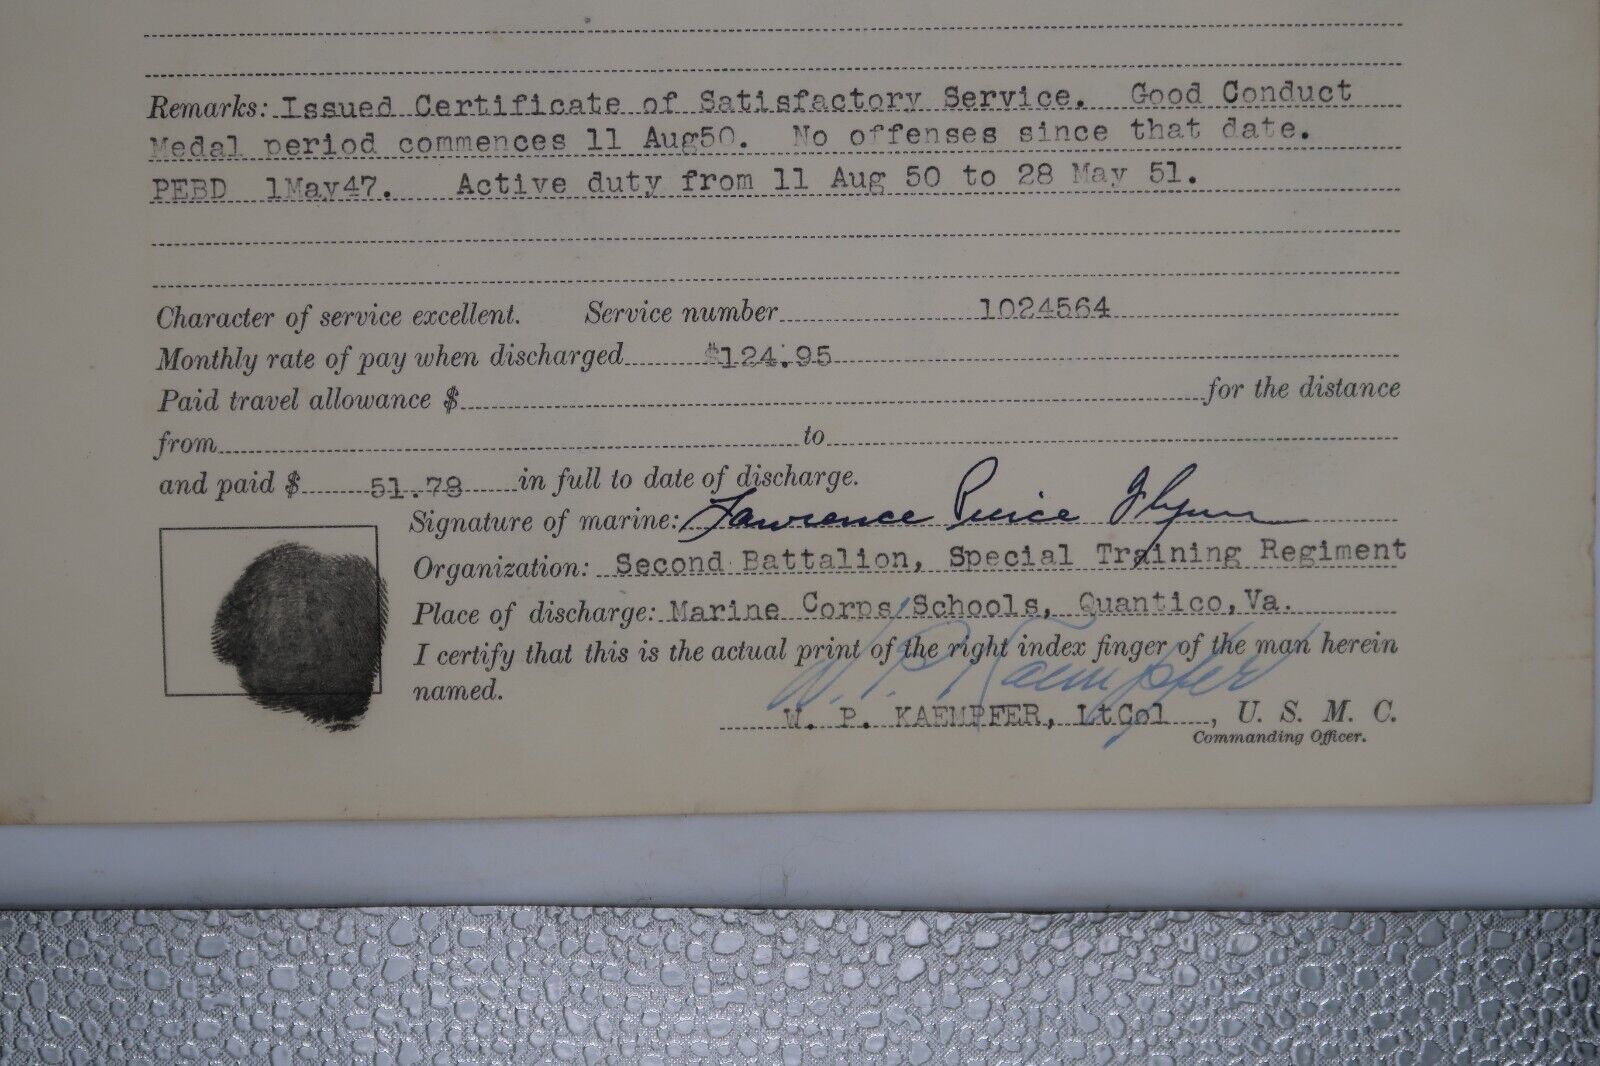 Remarks: Issued Certificate of Satisfactory Service. Good Conduct
Medal period commences 11 Aug50. No offenses since that date.
PEBD 1May47. Active duty from 11 Aug 50 to 28 May 51.
Character of service excellent. Service number 1024564
Monthly rate of pay when discharged $124.95
Paid travel allowance $ for the distance
from to
and paid $ 51.78 in full to date of discharge.
Signature of marine: Lawrence Pierce Flynn
Organization: Second Battalion, Special Training Regiment
Place of discharge: Marine Corps Schools, Quantico, Va.
I certify that this is the actual print of the right index finger of the man herein
named.
W. P. Kaempfer
W. P. KAEMPFER, LtCol, U. S. M. C.
Commanding Officer.